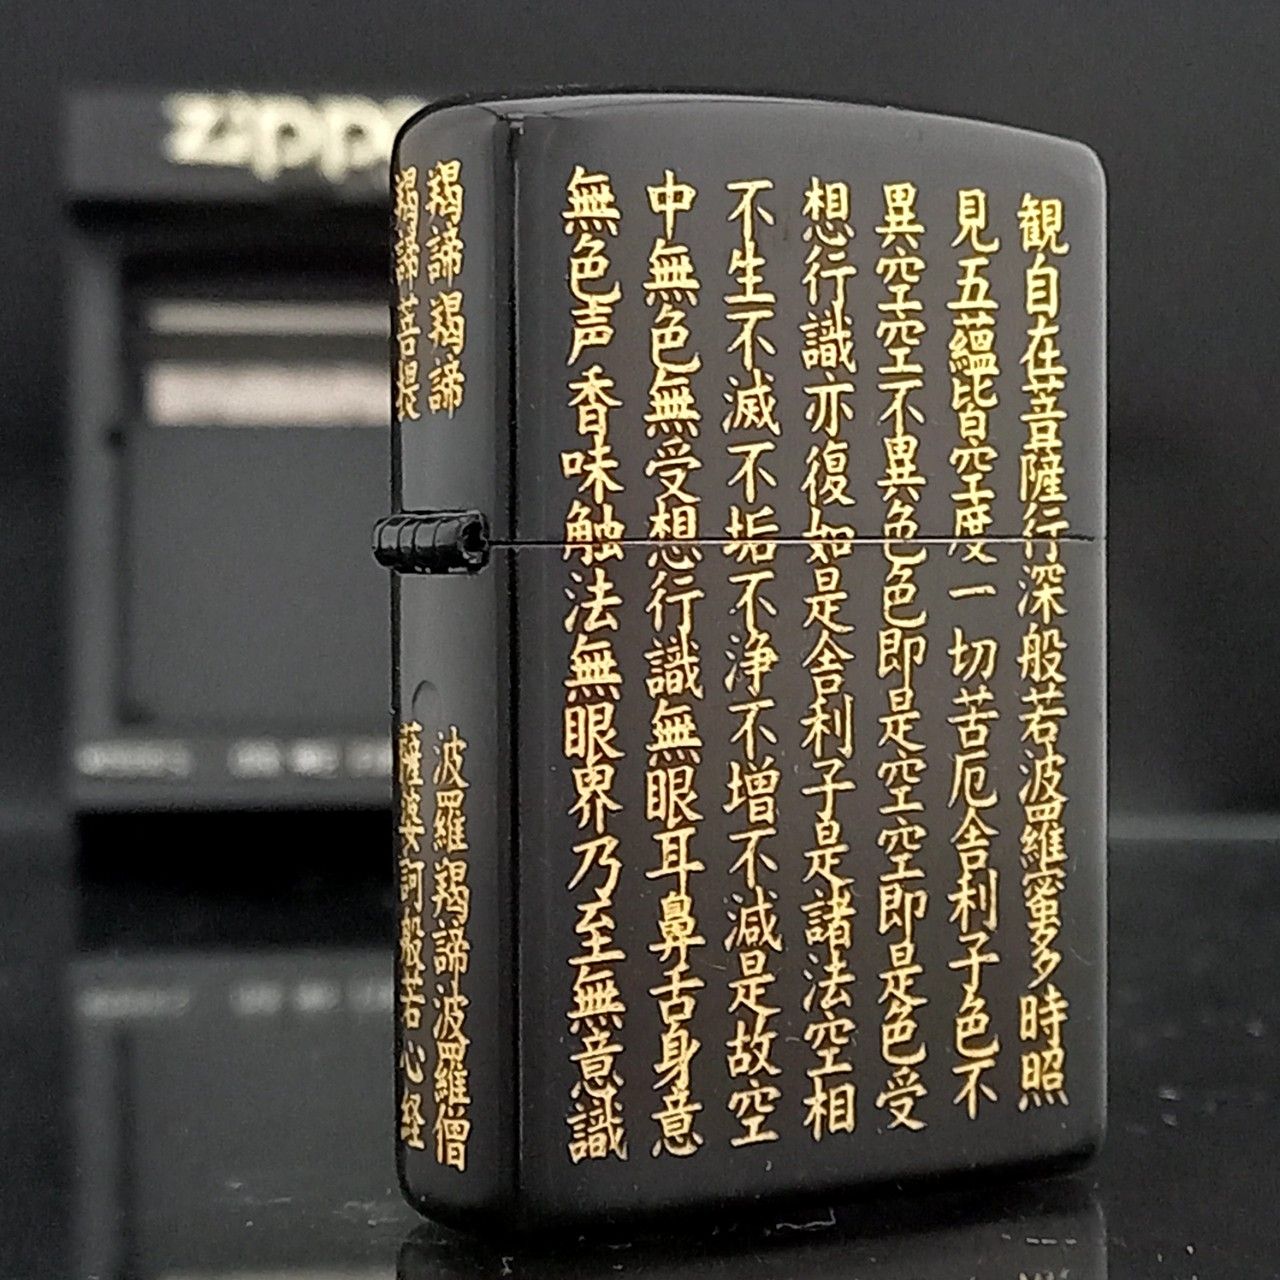 観自在菩薩行深般若波羅蜜多時照
見五蘊皆空度一切苦厄舎利子色不
異空空不異色色即是空空即是色受
想行識亦復如是舎利子是諸法空相
不生不滅不垢不浄不増不減是故空
中無色無受想行識無眼耳鼻舌身意
無色声香味触法無眼界乃至無意識
羯諦羯諦
波羅羯諦波羅僧
羯諦菩提
薩婆訶般若心経
zippo